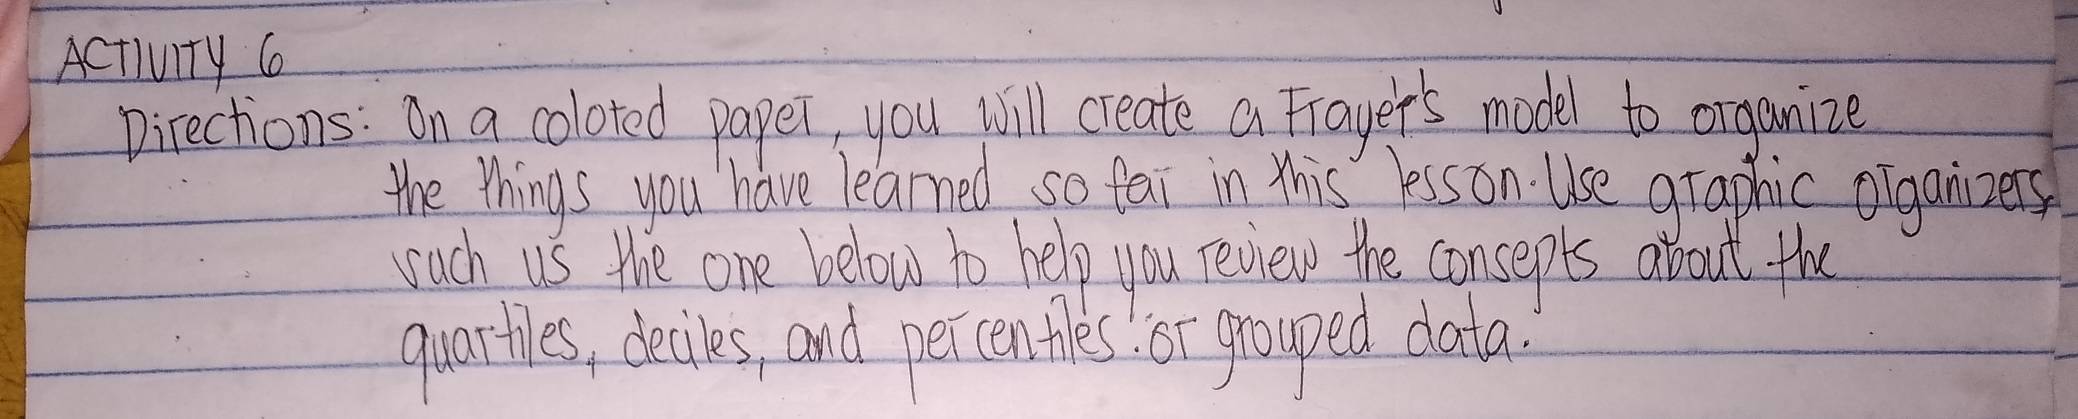 ACTIVITY 6
Directions: On a colored paper, you will create a Frayer's model to organize
the things you have learned so far in this lesson. Use graphic organizers,
such us the one below to help you review the consepts about the
quartiles, deciles, and percentiles or grouped data.